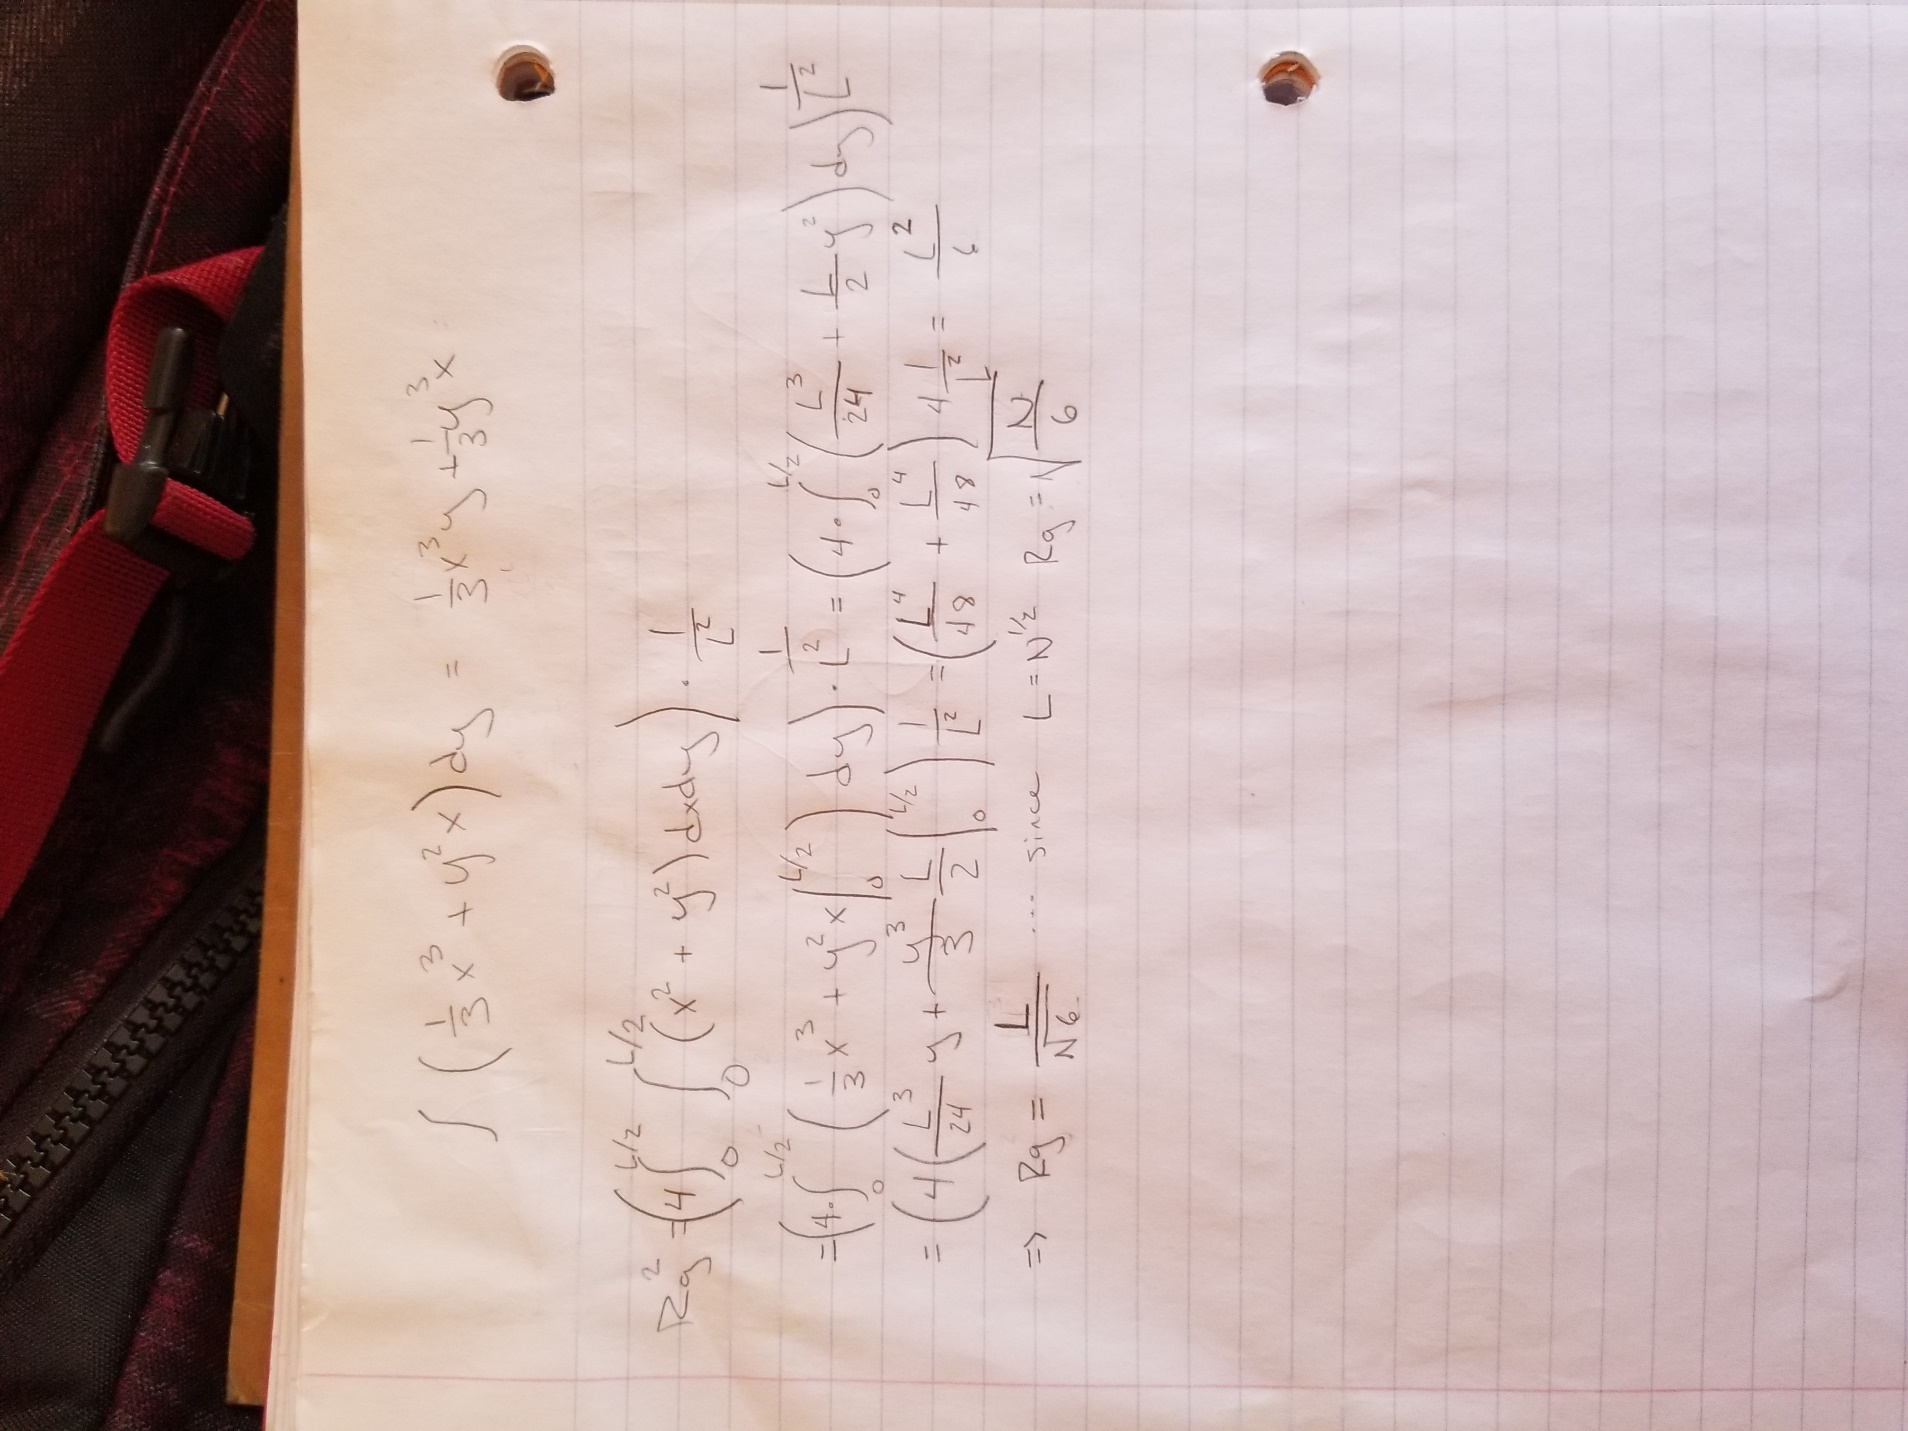 ∫ (1/3 x³ + y² x) dy = 1/3 x³ y + 1/3 y³ x
Rg² = (4 ∫₀^(L/2) ∫₀^(L/2) (x² + y²) dxdy) · 1/L²
= (4 · ∫₀^(L/2) (1/3 x³ + y² x |₀^(L/2)) dy) · 1/L² = (4 · ∫₀^(L/2) (L³/24 + L/2 y²) dy) 1/L²
= (4 (L³/24 y + y³/3 L/2 |₀^(L/2)) 1/L² = (L⁴/48 + L⁴/48) 4 1/L² = L²/6
⇒ Rg = L/√6 .... since L = N^(1/2) Rg = √(N/6)